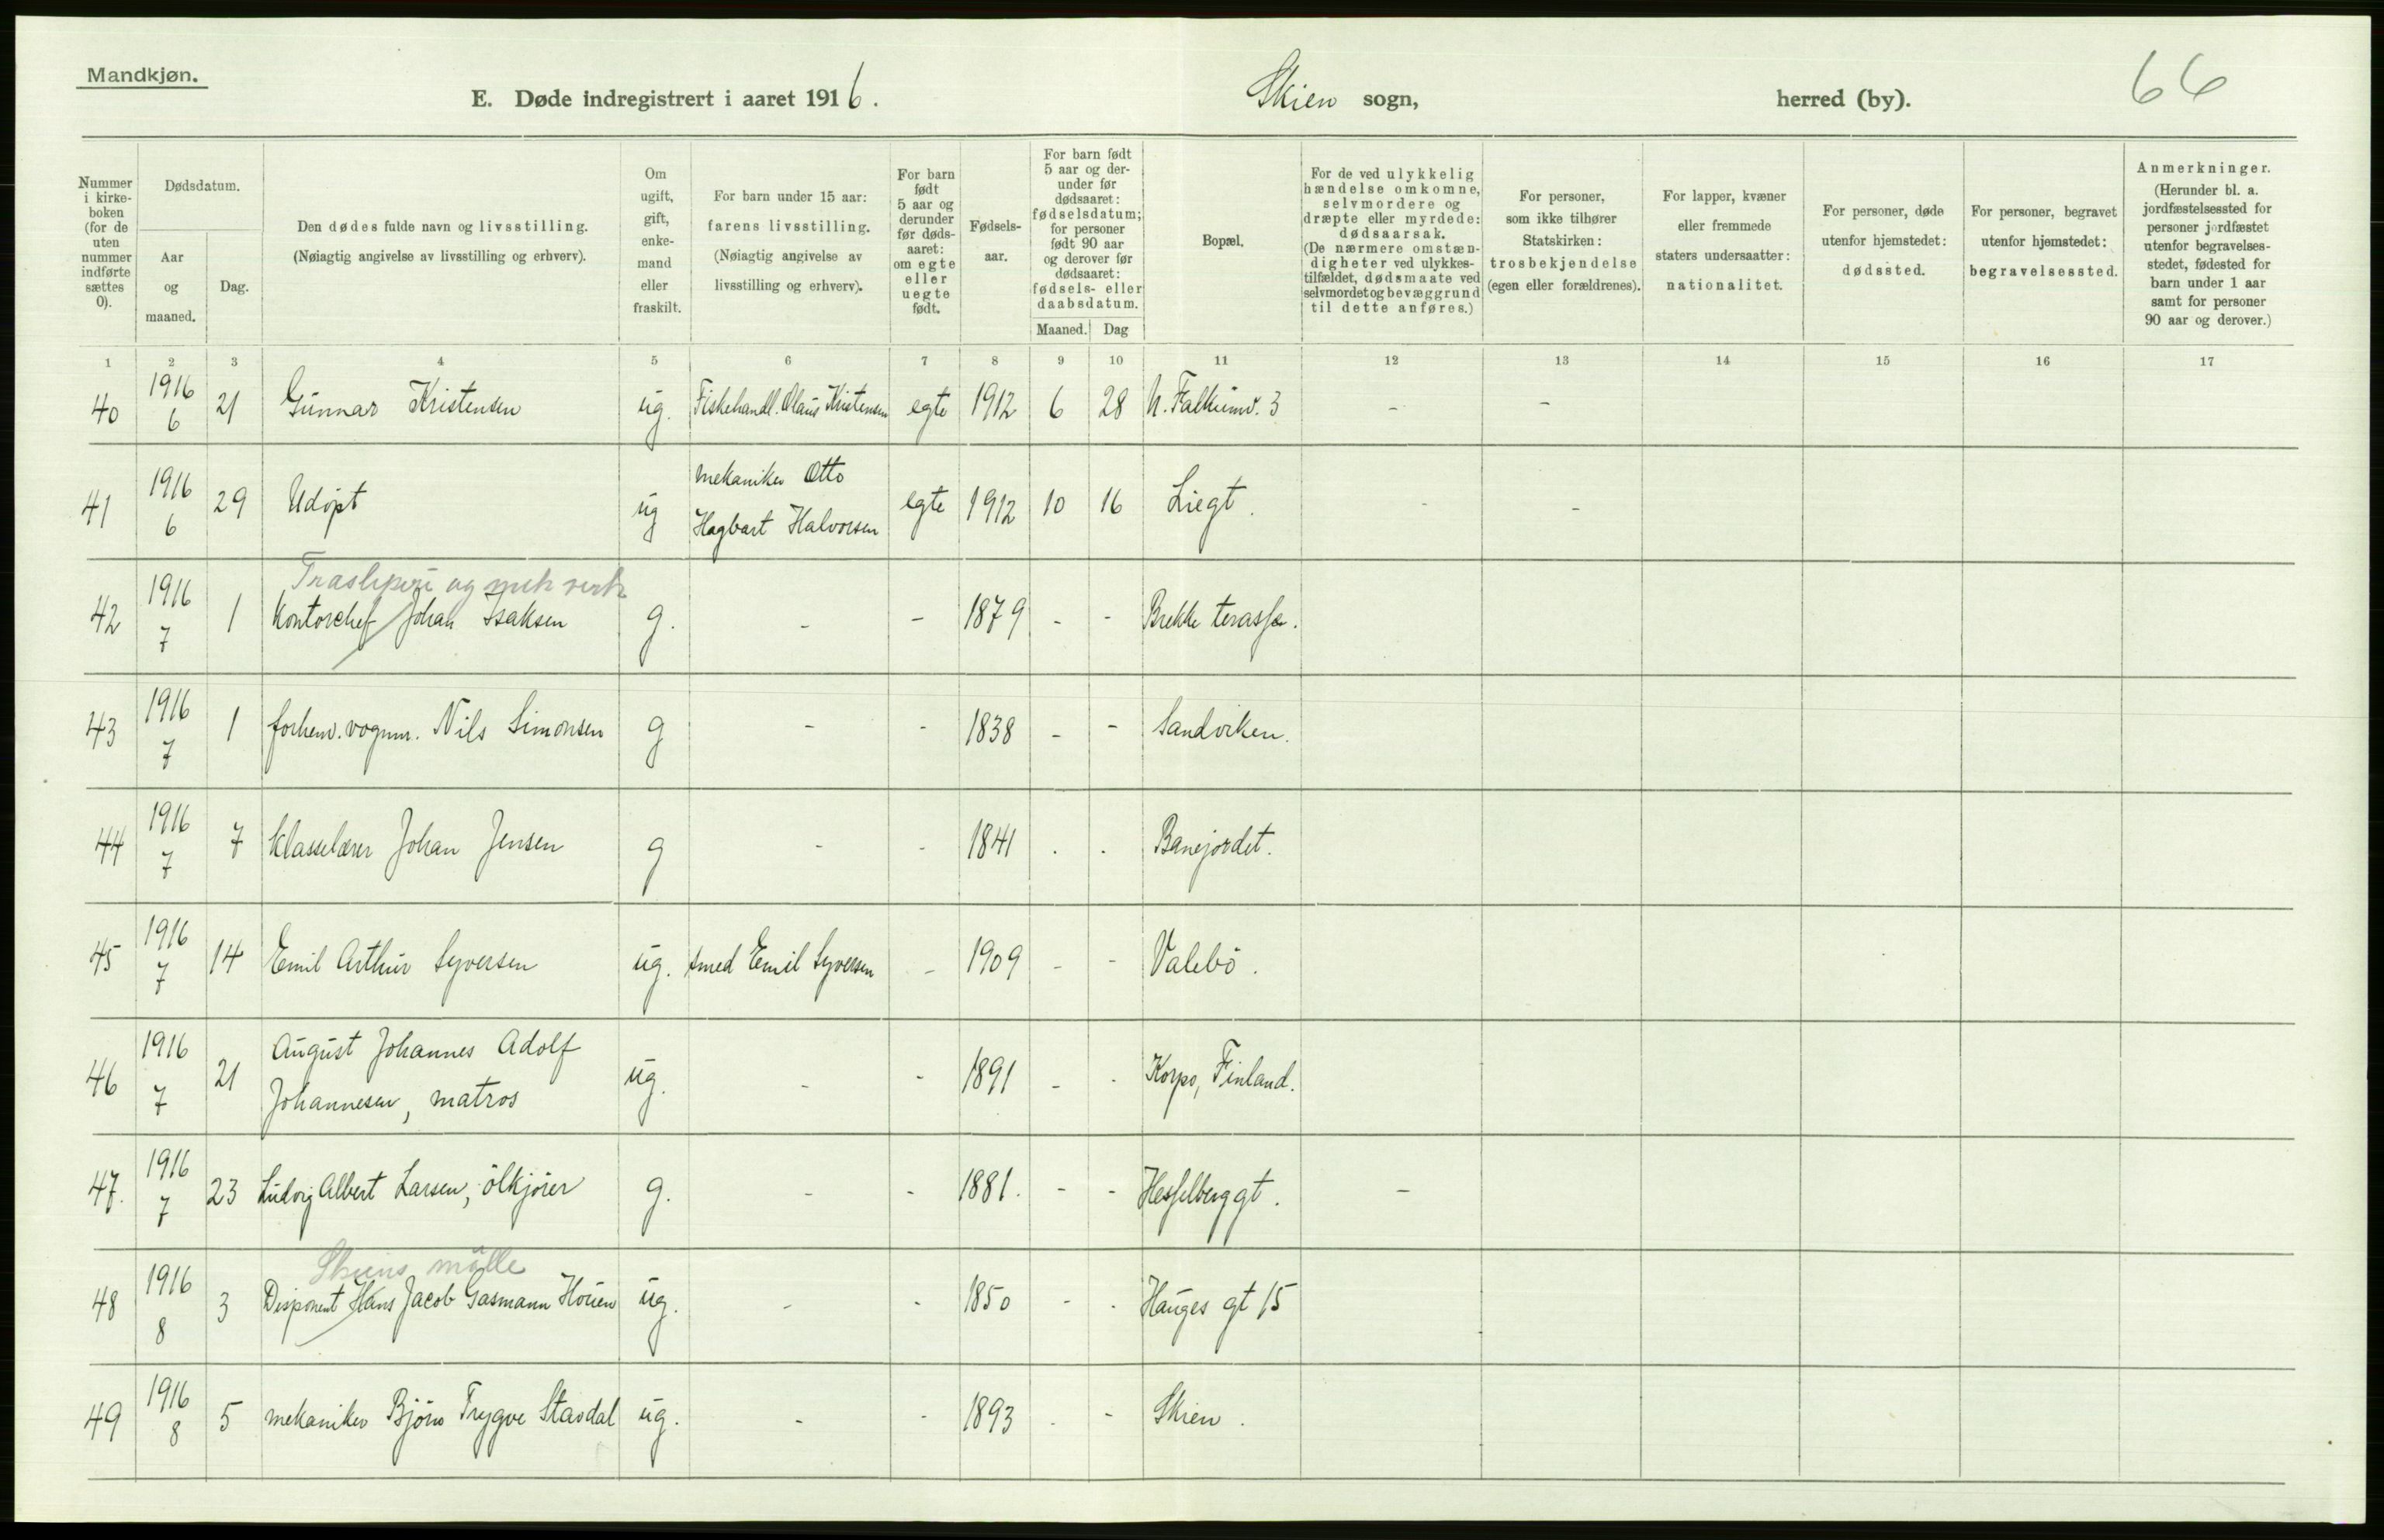 Mandkjøn.
E. Døde indregistrert i aaret 1916.
Skien sogn,
herred (by).
66
Nummer i kirke-boken (for de uten nummer indførte sættes 0).
Dødsdatum.
Aar og maaned.
Dag.
Den dødes fulde navn og livsstilling.
(Nøiagtig angivelse av livsstilling og erhverv).
Om ugift, gift, enke-mand eller fraskilt.
For barn under 15 aar:
farens livsstilling.
(Nøiagtig angivelse av
livsstilling og erhverv).
For barn født 5 aar og derunder før døds-aaret: om egte eller uegte født.
Fødsels-aar.
For barn født 5 aar og der-under før dødsaaret: fødselsdatum; for personer født 90 aar og derover før dødsaaret: fødsels- eller daabsdatum.
Maaned.
Dag
Bopæl.
For de ved ulykkelig hændelse omkomne, selvmordere og dræpte eller myrdede: dødsaarsak. (De nærmere omstæn-digheter ved ulykkes-tilfældet, dødsmaate ved selvmordet og bevæggrund til dette anføres.)
For personer, som ikke tilhører Statskirken: trosbekjendelse (egen eller forældrenes).
For lapper, kvæner eller fremmede staters undersaatter: nationalitet.
For personer, døde utenfor hjemstedet: dødssted.
For personer, begravet utenfor hjemstedet: begravelsessted.
Anmerkninger.
(Herunder bl. a. jordfæstelsessted for personer jordfæstet utenfor begravelses-stedet, fødested for barn under 1 aar samt for personer 90 aar og derover.)
1 2 3 4 5 6 7 8 9 10 11 12 13 14 15 16 17
40 1916 6 21 Gunnar Kristensen ug. Fiskehandl. Olaus Kristensen egte 1912 6 28 N. Falkumv. 3 - -
41 1916 6 29 Udøpt ug mekaniker Otto Hagbart Halvorsen egte 1912 10 16 Liegt. - -
Træsliperi og mek verk
42 1916 7 1 Kontorchef Johan Isaksen g. - - 1879 - - Brekke terasse.
43 1916 7 1 forhenv. vognm. Nils Simonsen g - - 1838 - - Sandviken.
44 1916 7 7 Klasselærer Johan Jensen g - - 1841 . . Banejordet.
45 1916 7 14 Emil Arthur Syversen ug. smed Emil Syversen - 1909 - - Valebö.
46 1916 7 21 August Johannes Adolf Johannesen, matros ug. - - 1891 - - Korpo, Finland.
47. 1916 7 23 Ludvig Albert Larsen, ölkjörer g. - - 1881. - - Hesselberggt. -
Skiens mölle
48 1916 8 3 Disponent Hans Jacob Gasmann Houen ug. - - 1850 - - Hauges gt 15
49 1916 8 5 mekaniker Björn Trygve Stavdal ug. - - 1893 . - Skien.